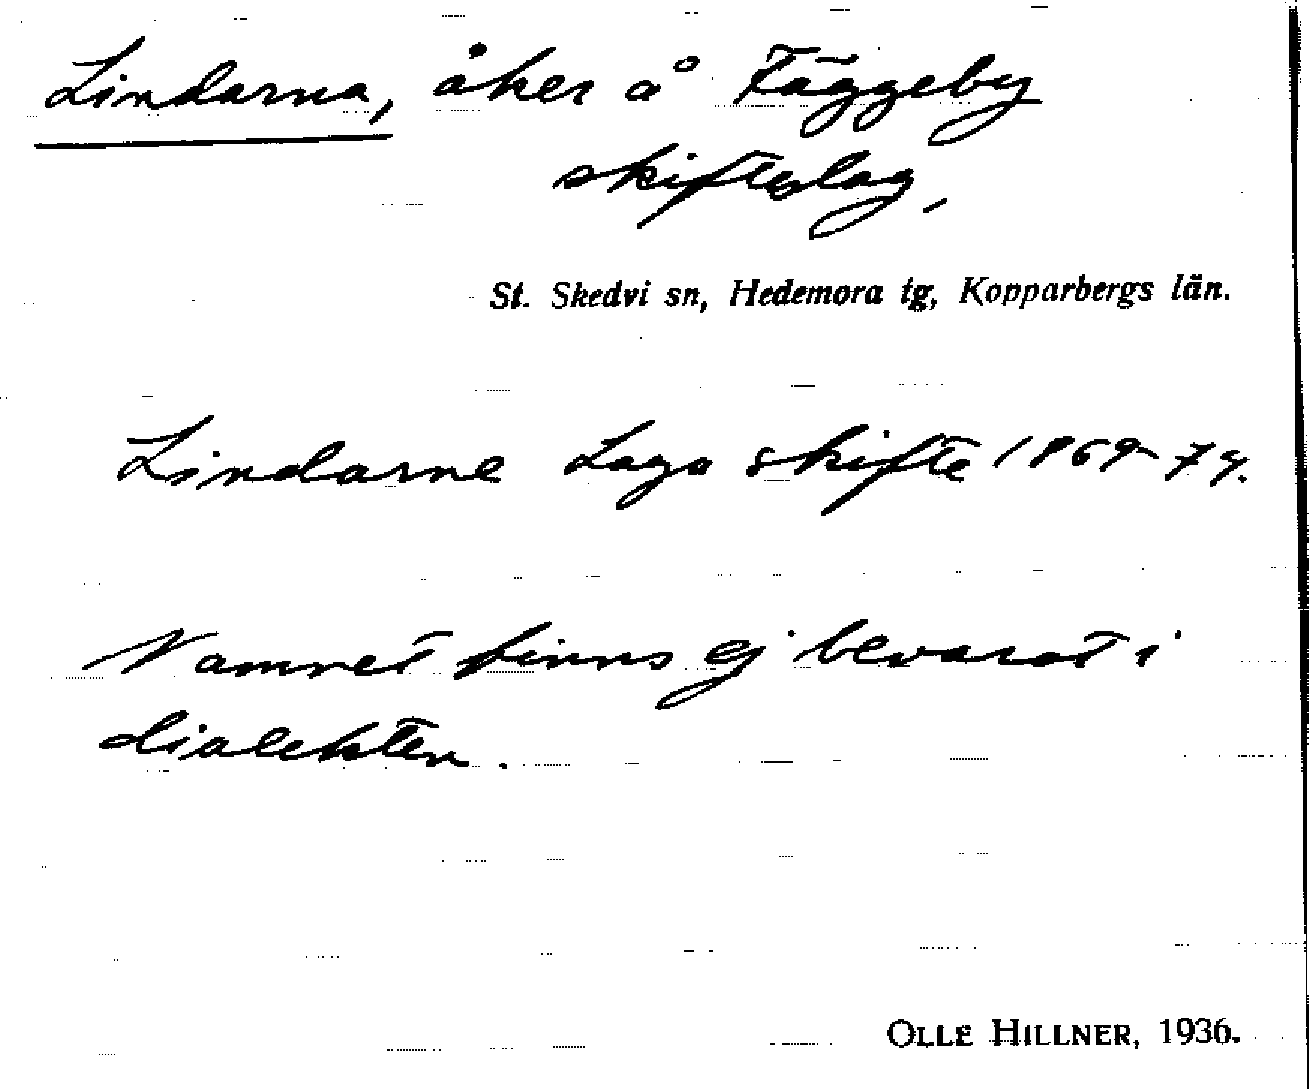 Lindarna, åker å Fäggeby
skifteslag,
St. Skedvi sn, Hedemora tg, Kopparbergs län.
Lindarne Laga skifte 1869-74.
Namnet finns ej bevarat i
dialekten.
OLLE HILLNER, 1936.